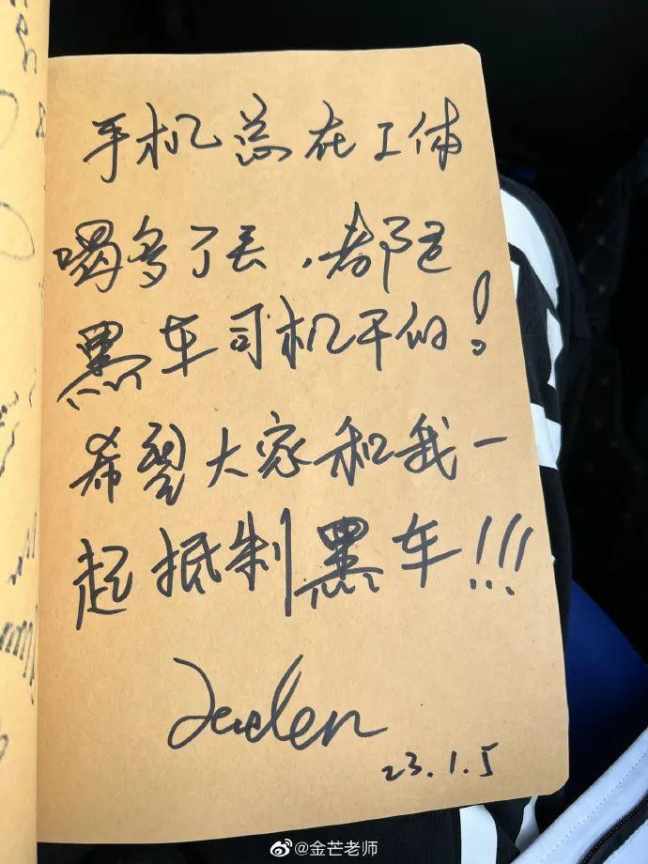 手机总在工体
喝多了丢,都是
黑车司机干的!
希望大家和我一
起抵制黑车!!!
23.1.5
@金芒老师